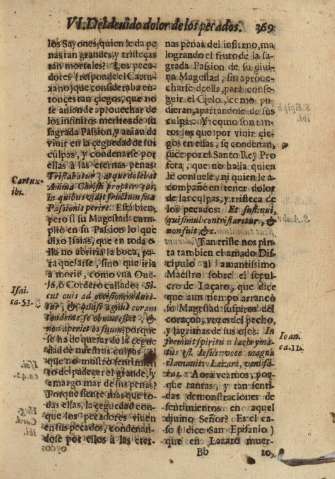 VI. Del deuido dolor de los pecados. 369
los Sayones, quien le da pe
nas tan grandes, y tristeças
tan mortales? Los peca
dores (responde el Cartu-
xano) que consideraba en-
tonces tan ciegos, que no
se auian de aprouechar de
los infinitos meritos de su
sagrada Passion, y auian de
viuir en la ceguedad de sus
culpas, y condenarse por
ellas à las eternas penas:
Tristabatur, atque dolebat
Anima Christi propter eos,
in quibus
Passionis perire. Està bien,
pero si su Magestad cum-
plió en su Passion lo que
dixo Isaias, que en toda e-
lla no abriria la boca, pa-
ra quexarse, sino que iria
à morir, como vna Oue-
ja, ò Cordero callado: Si-
cut ouis ad occisionem ducè-
tur, & quasi agnus coram
tondente se obmutescet, &
non aperiet os suum; porque
se ha de quexar de la cegue-
dad de nuestras culpas
que no mostró sentimien-
to del padecer el grande, y
amargo mar de sus penas?
Porque siente mas que to-
das ellas, la ceguedad con-
que los viuos, condenan-
dose por ellos à las eter-
nas penas del infierno, ma
logrando el fruto de la sa-
grada Passion de su diui-
na Magestad, sin aproue-
charse de ella, para conse-
guir el Cielo, como pu-
dieran, apartandose de sus
culpas. Y como son tan-
tos los que por viuir cie-
gos en ellas, se condenan,
dize por el Santo Rey Pro
feta, que no halla quien
le consuele, ni quien le a-
compañe en tener dolor
de las culpas, y tristeça de
los pecados: Et sustinui,
qui simul contristaretur, &
non fuit &c.
Tan triste nos pin-
ta tambien el amado Dis-
cipulo al amantissimo
Maestro sobre el sepul-
cro de Lazaro, que dize
que aun tiempo arrancò
su Magestad suspiros del
coraçon, vozes del pecho,
y lagrimas de sus ojos: In
fremuit spiritu: & lachryma-
tus est Iesus: voce magna
clamauit: Lazare, veni fo-
ras. Aora veamos, por-
que tantas, y tan senti-
das demonstraciones de
sentimientos en aquel
diuino Señor? Es el ca-
so (dize San Epifanio)
que en Lazaro muer-
Bb
to,
Cartux.
ibi.
Isai.
ca. 53.
Ioan.
ca. 11.